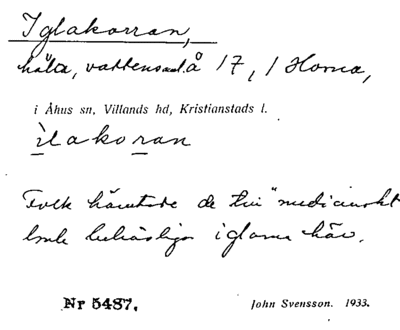 Iglakorran,
håla, vattensaml. å 17, 1 Horna,
i Åhus sn, Villands hd, Kristianstads l.
ilakoran
Folk hämtade de till "medicinskt
bruk behövliga iglarna här.
Nr 5487.
John Svensson. 1933.